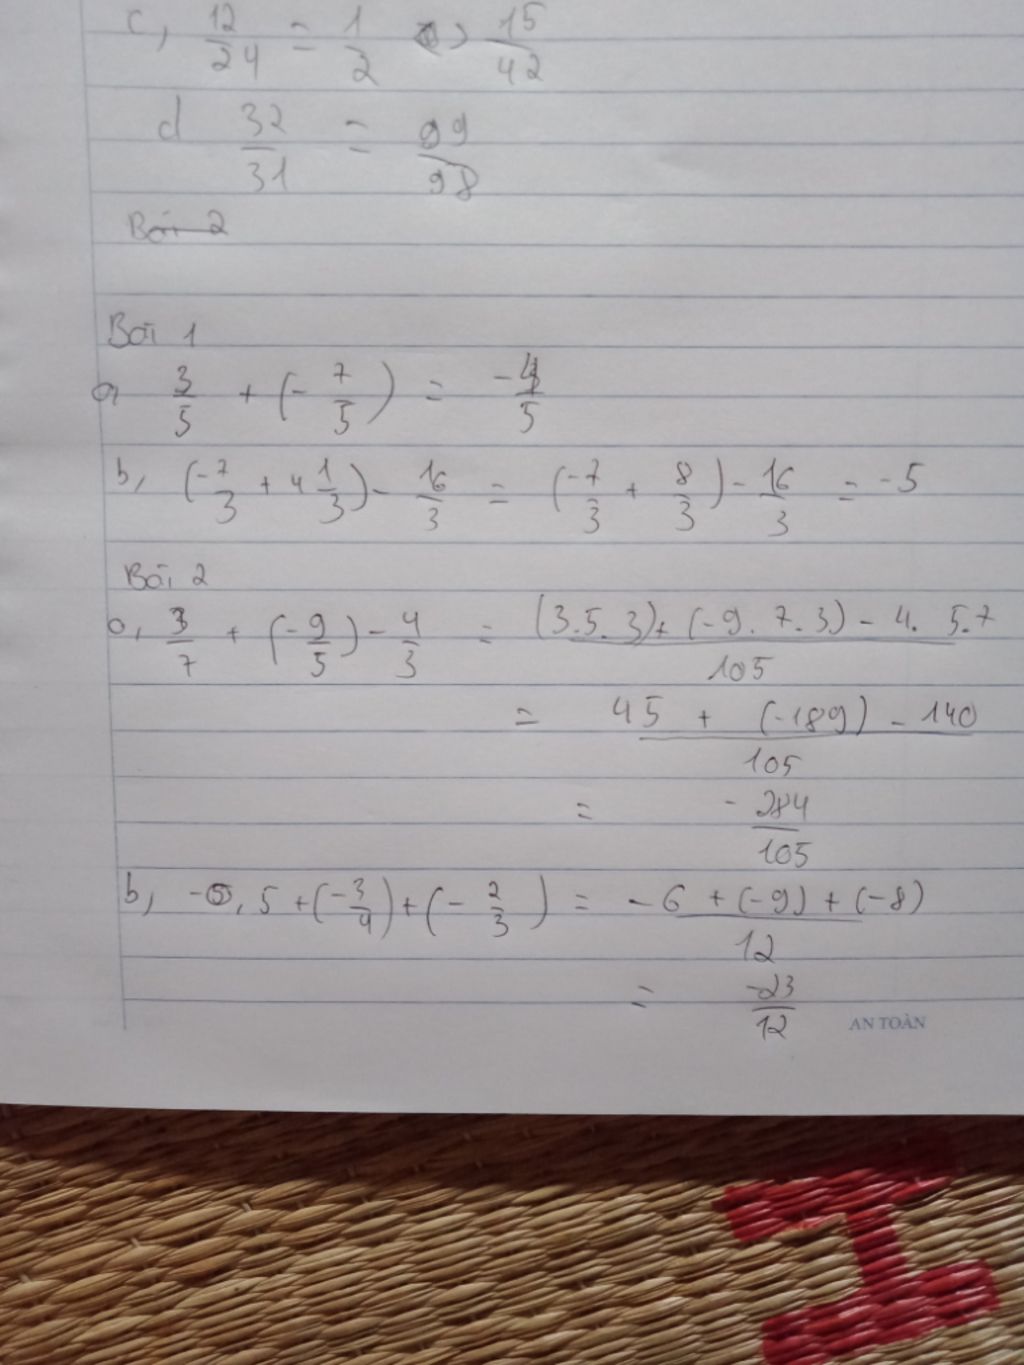 c, 12/24 = 1/2 > 15/42
d 32/31 = 99/98
Bài 2
Bài 1
a 3/5 + (- 7/5) = -4/5
b, (-7/3 + 4 1/3) - 16/3 = (-7/3 + 8/3) - 16/3 = -5
Bài 2
a, 3/7 + (-9/5) - 4/3 = (3.5.3) + (-9.7.3) - 4.5.7 / 105
= 45 + (-189) - 140 / 105
= - 284/105
b, -0,5 + (-3/4) + (- 2/3) = -6 + (-9) + (-8) / 12
= -23/12
AN TOÀN